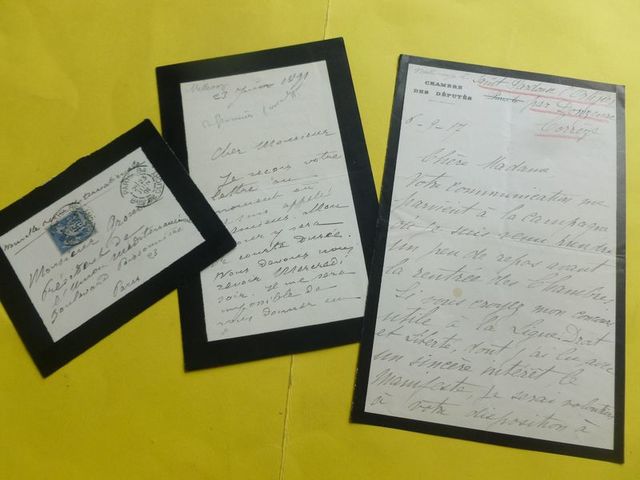 Monsieur
Président de
l'Union
Boulevard Poissonnière
23
Paris
23 Juin 1891
Cher Monsieur
Je reçois votre
lettre au
moment où
je suis appelé
y sera
de courte durée.
Nous devons nous
revoir Mercredi
soir. Il me sera
impossible de
vous donner un
CHAMBRE
DES DÉPUTÉS
par
Corrèze
6-9-17
Chère Madame
Votre communication me
parvient à la campagne
où je suis venu prendre
un peu de repos avant
la rentrée des Chambres.
Si vous croyez mon concours
utile à la Ligue Droit
et Liberté, dont j'ai lu avec
un sincère intérêt le
manifeste, je serai volontiers
à votre disposition à